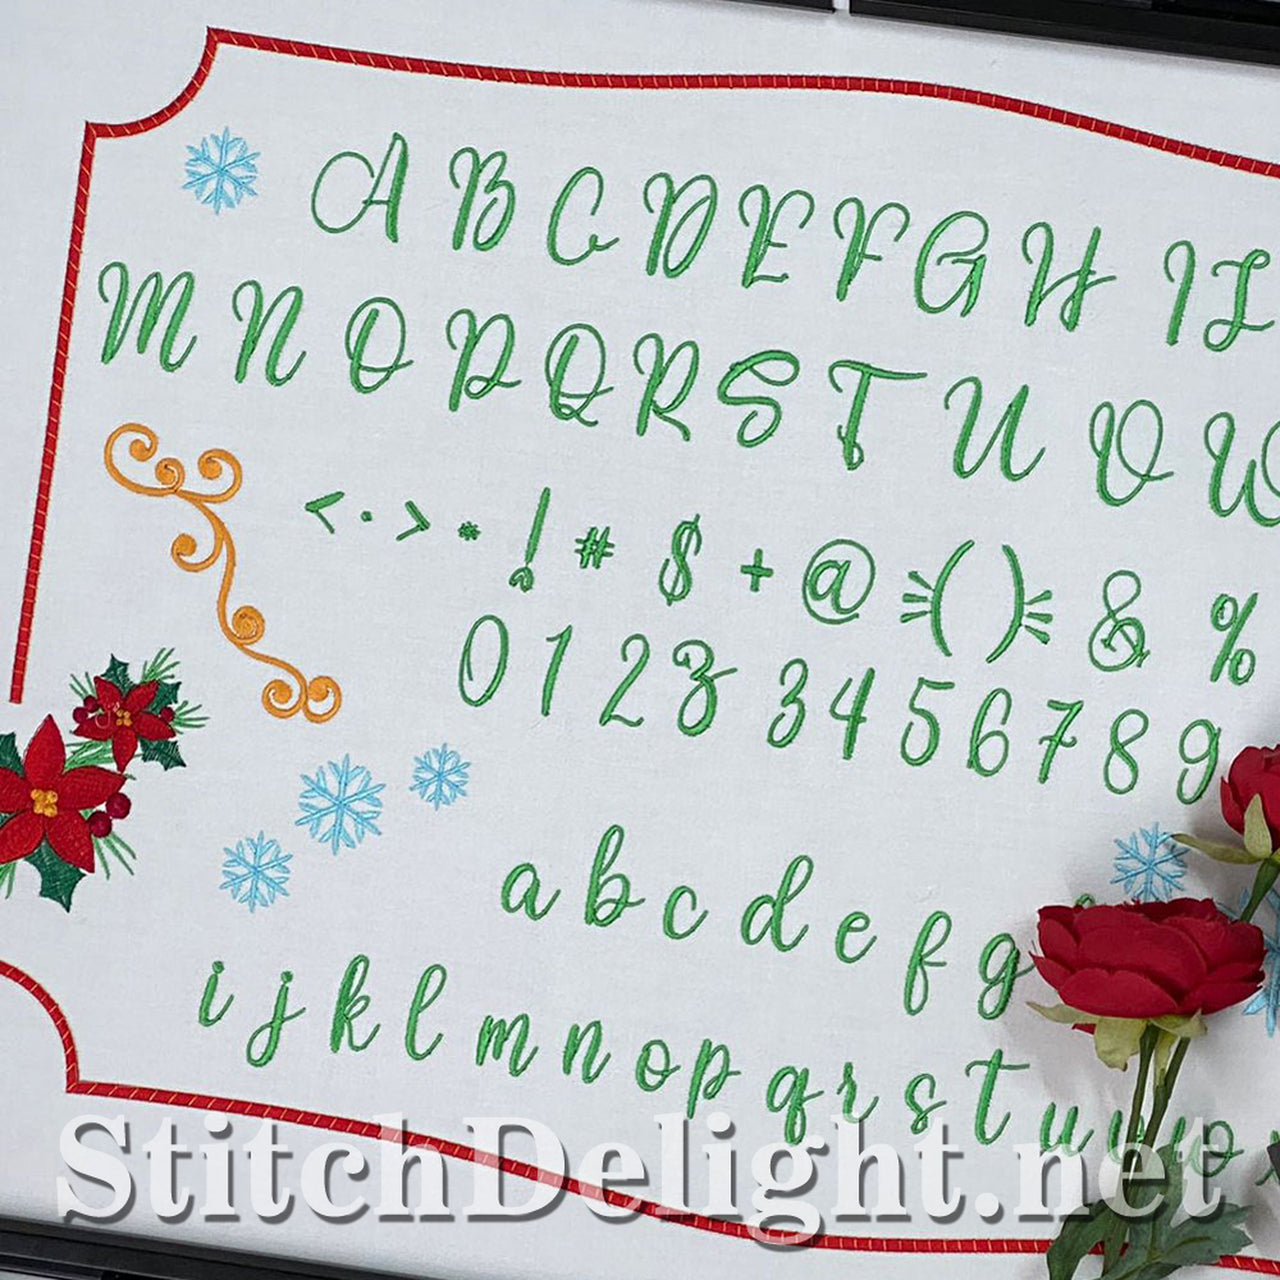 A B C D E F G H I J
M N O P Q R S T U V W
< · > * ! # $ + @ ( ) & %
0 1 2 3 3 4 5 6 7 8 9
a b c d e f g
i j k l m n o p q r s t u v w x
StitchDelight.net